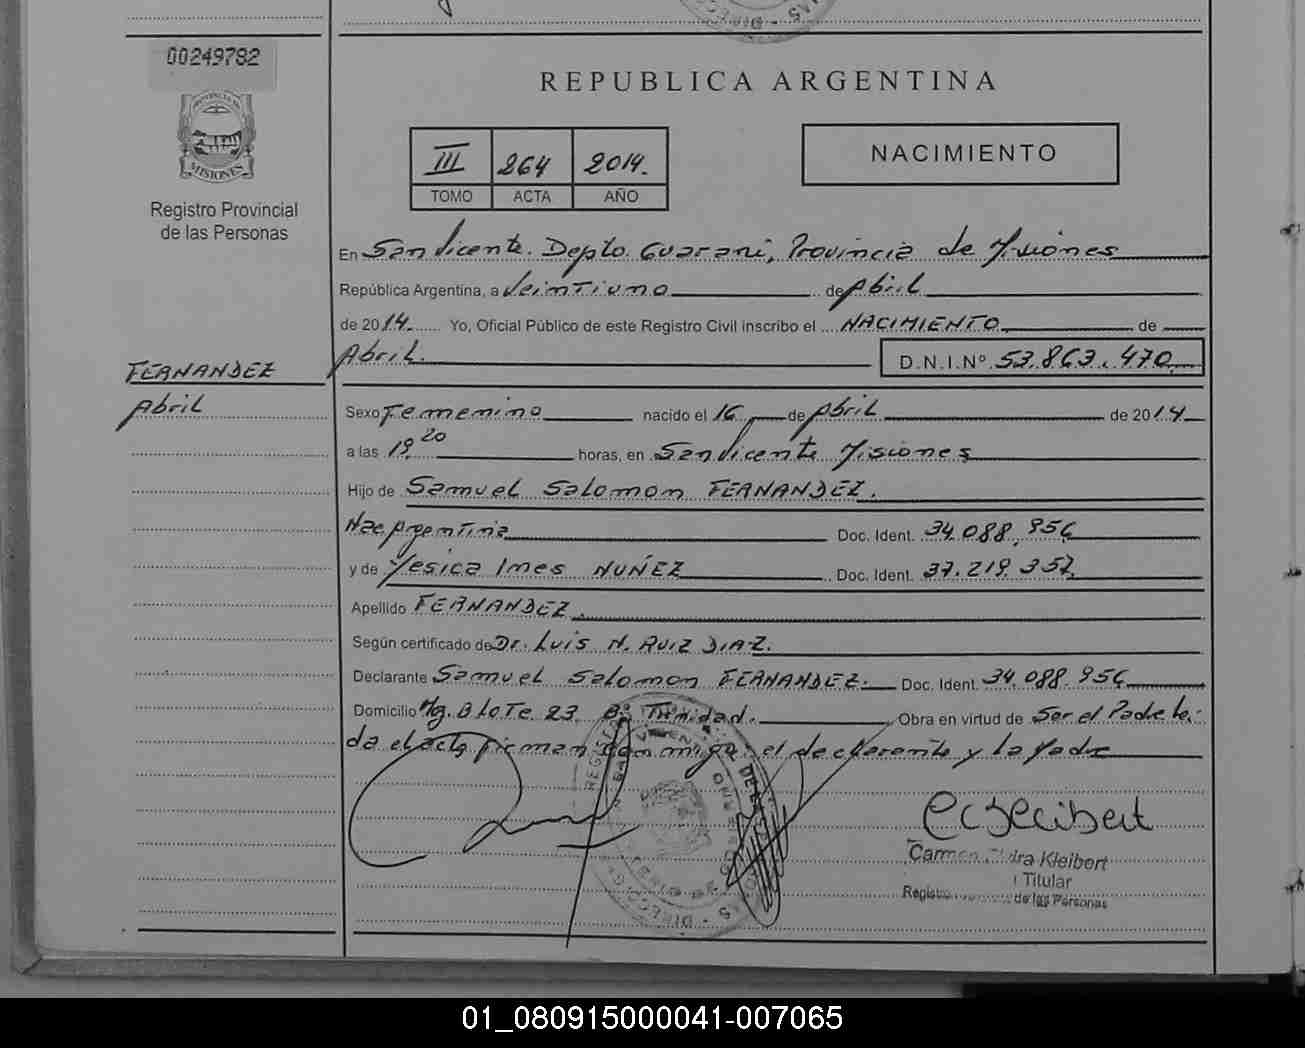 00249782
PROVINCIA DE
MISIONES
Registro Provincial
de las Personas
REPUBLICA ARGENTINA
III 264 2014.
TOMO ACTA AÑO
NACIMIENTO
En San Vicente. Depto. Guarani, Provincia de Misiones
República Argentina, a Veintiuno de Abril
de 2014. Yo, Oficial Público de este Registro Civil inscribo el NACIMIENTO de
Abril. D.N.I.Nº 53.863.470
FERNANDEZ
Abril
Sexo Femenino nacido el 16 de Abril de 2014
a las 19.20 horas, en San Vicente Misiones
Hijo de Samuel Salomon FERNANDEZ.
Nac Argentina Doc. Ident. 34.088.956
y de Yesica Ines NUÑEZ Doc. Ident. 37.219.357
Apellido FERNANDEZ.
Según certificado de Dr. Luis N. Ruiz Diaz.
Declarante Samuel Salomon FERNANDEZ. Doc. Ident. 34.088.956
Domicilio Mz. B Lote 23 Bº Trinidad. Obra en virtud de Ser el Padre le-
da el acta firman conmigo: el declarante y la Madre
Carmen Kleibert
Titular
Registro de las Personas
01_080915000041-007065